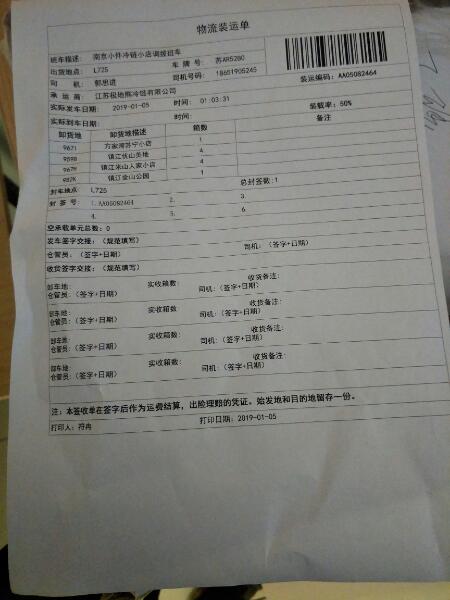 物流装运单
班车描述: 南京小件冷链小店调拨班车
出货地点: L725 车 牌 号: 苏AR5280
司 机: 郭思进 司机号码: 18651905245
承 运 商: 江苏极地熊冷链有限公司 装运编码: AA05082464
实际发车日期: 2019-01-05 时间: 01:03:31 装载率: 50%
实际到车日期: 时间: 备注
卸货地 卸货地描述 箱数
方家湾苏宁小店 1
镇江优山美地 4
镇江米山人家小店 4
镇江金山公园 1
封车地点 L725 总封签数:1
封 签 号: 1.AA05082464 2. 3.
4. 5. 6.
空承载单元总数: 0
发车签字交接: (规范填写)
仓管员: (签字+日期) 司机: (签字+日期)
收货签字交接: (规范填写)
卸车地: 实收箱数: 收货备注:
仓管员: (签字+日期) 司机: (签字+日期)
卸车地: 实收箱数: 收货备注:
仓管员: (签字+日期) 司机: (签字+日期)
卸车地: 实收箱数: 收货备注:
仓管员: (签字+日期) 司机: (签字+日期)
卸车地: 实收箱数: 收货备注:
仓管员: (签字+日期) 司机: (签字+日期)
注: 本签收单在签字后作为运费结算, 出险理赔的凭证。始发地和目的地留存一份。
打印人: 符冉 打印日期: 2019-01-05